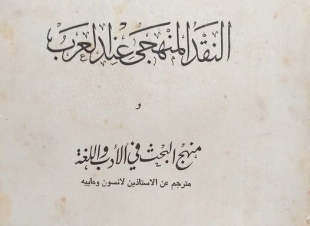 النقد المنهجى عند العرب
و
منهج البحث في الأدب واللغة
مترجم عن الاستاذين لانسون وماييه